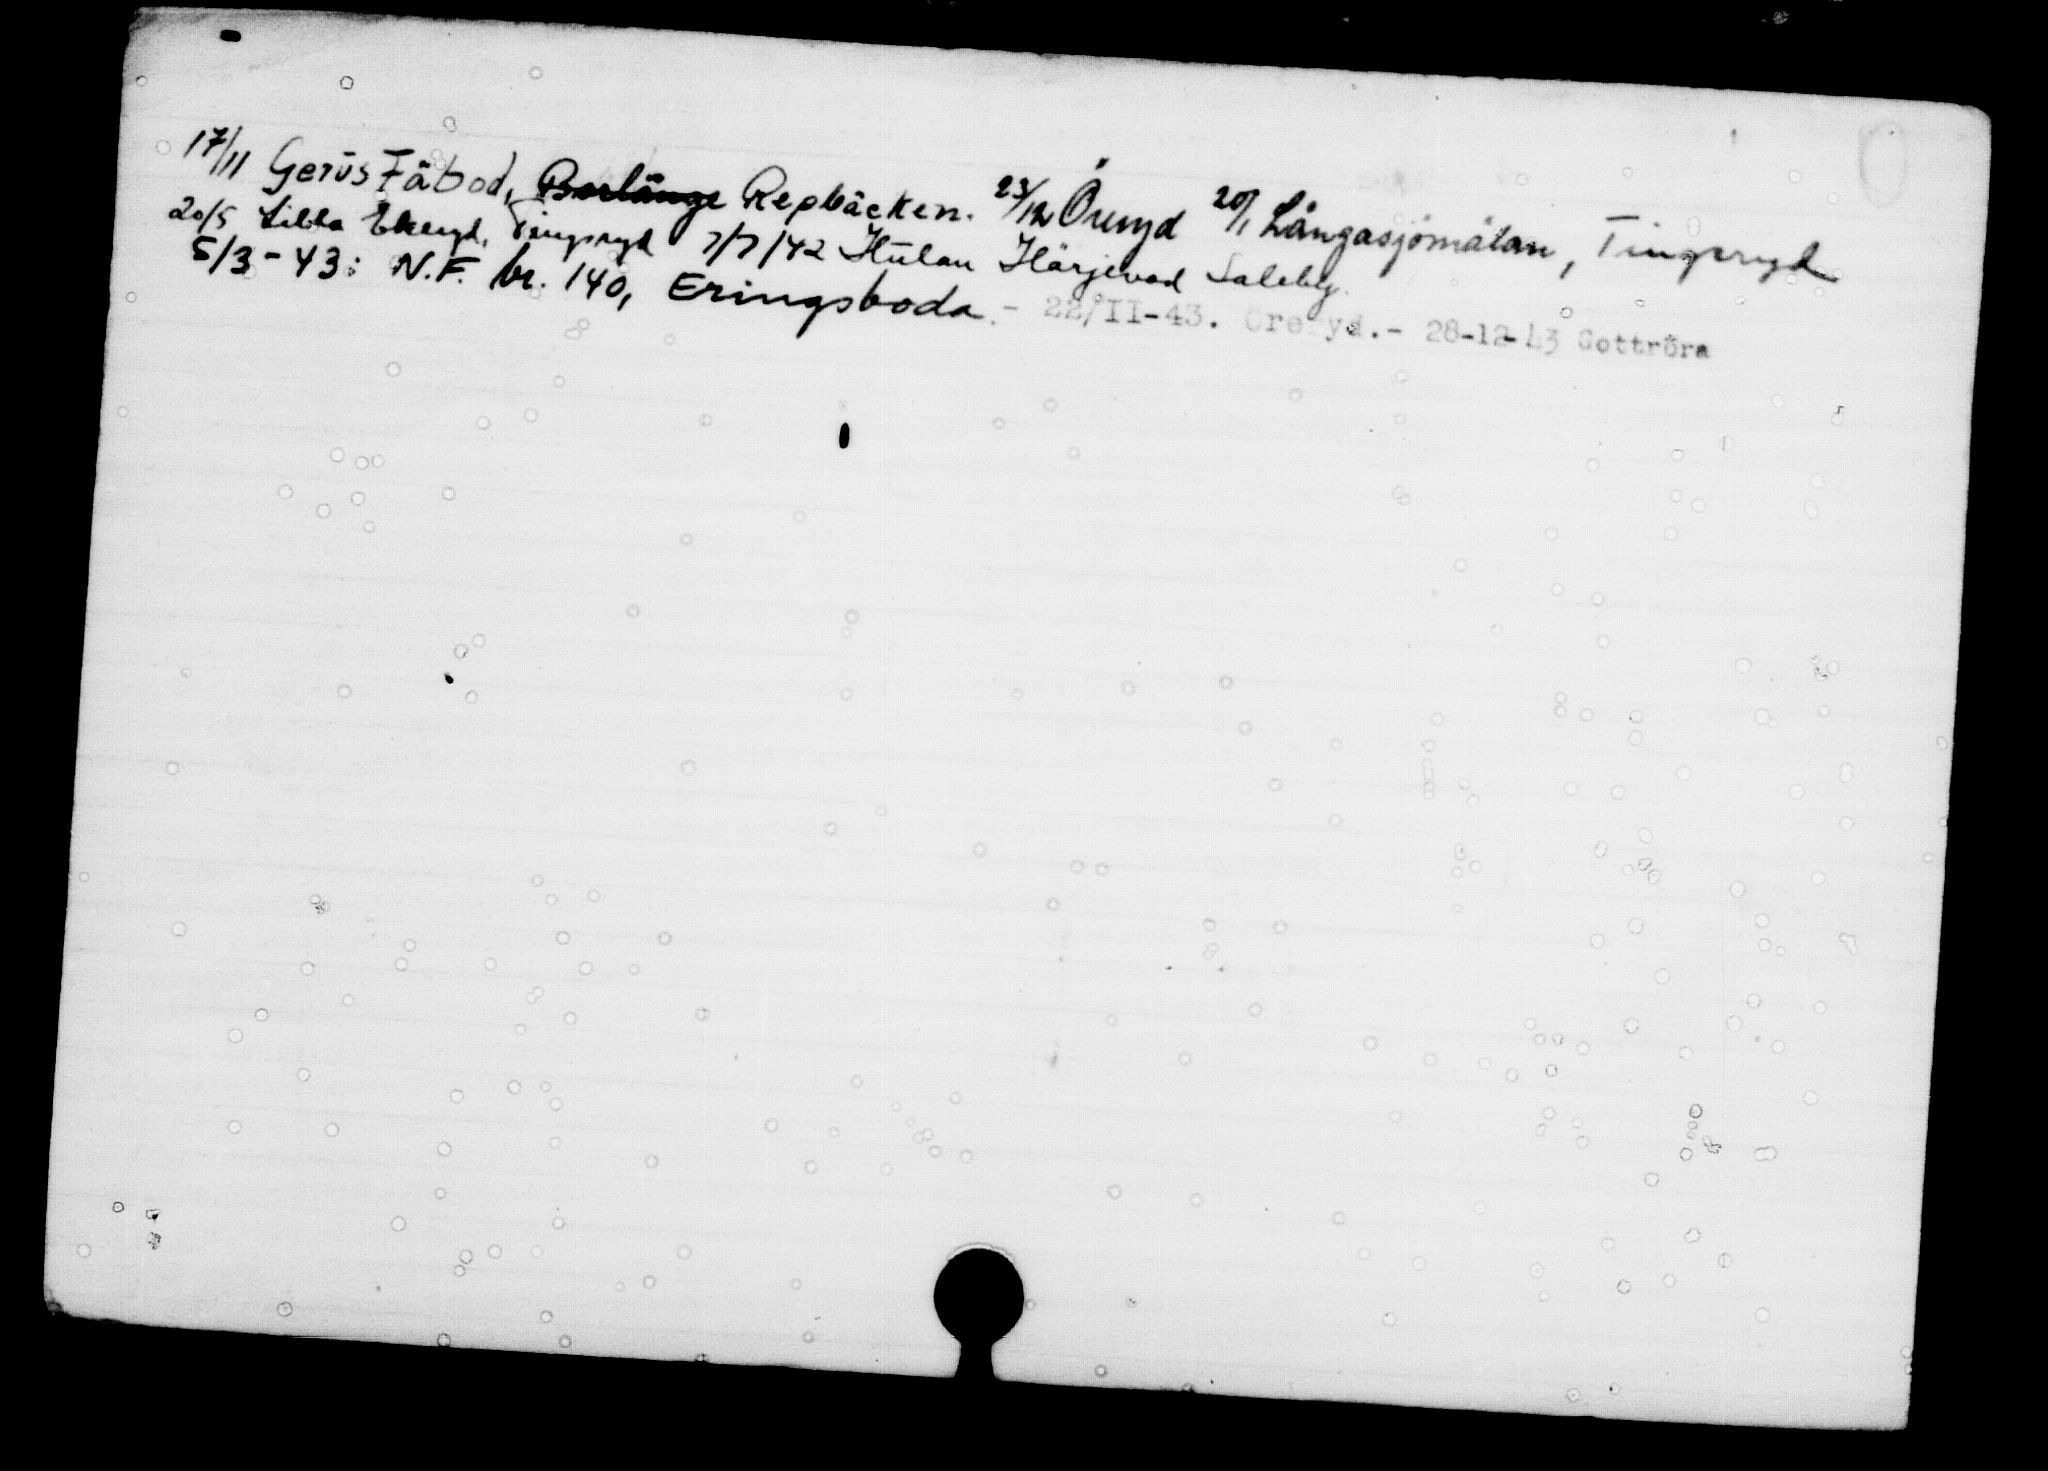 17/11 Gerüs Fäbod, Borlänge Repbäcken. 23/12 Öreryd 20/1 Långasjömåla, Tingsryd
20/5 Lilla Ekeryd, Tingsryd 7/7/42 Hülan Härjevad Saleby.
5/3-43: N.F. br. 140, Eringsboda.- 22/II-43. Öreryd.- 28-12-43 Gottröra